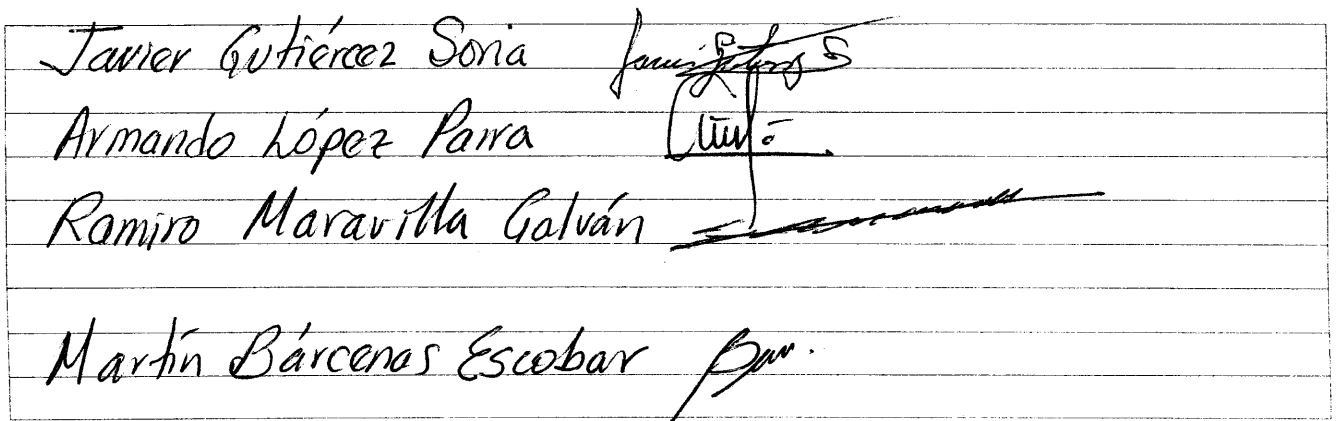 Javier Gutiérrez Soria
Armando López Parra
Ramiro Maravilla Galván
Martín Bárcenas Escobar